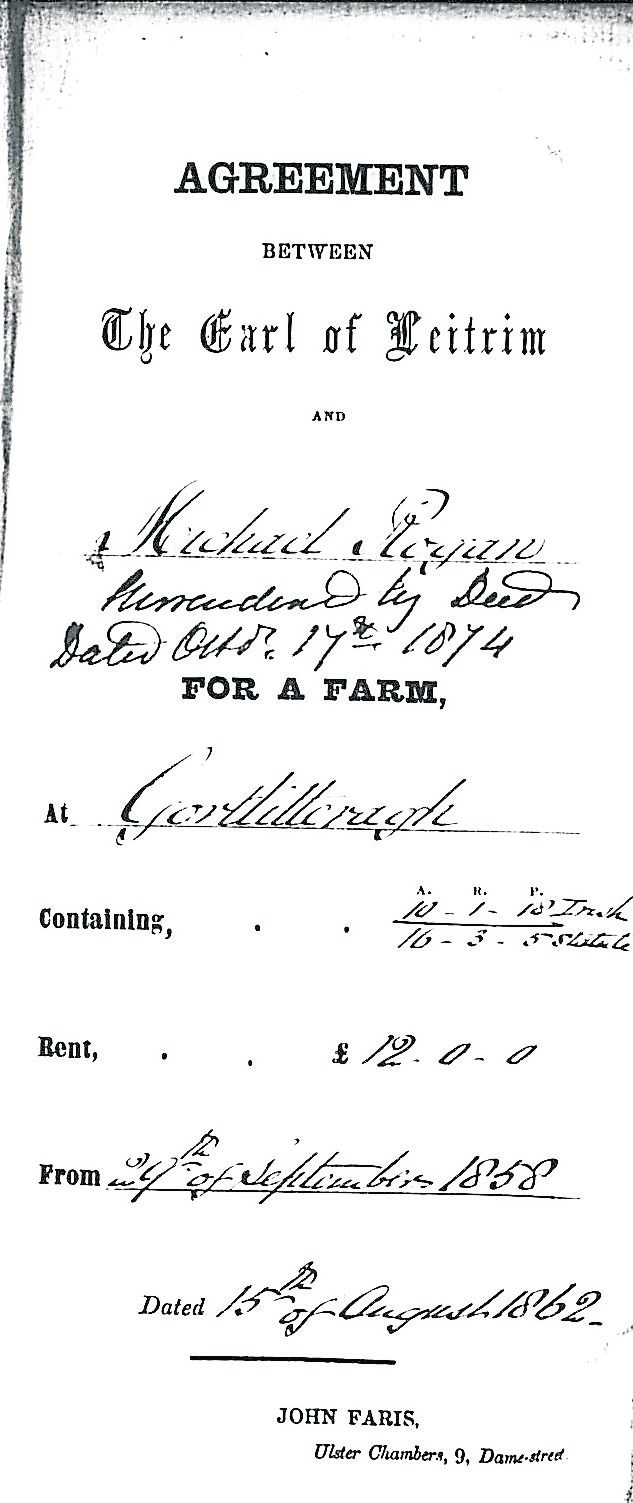 AGREEMENT
BETWEEN
The Earl of Leitrim
AND
Michael Rogan
Surrendered by Deed
Dated Octbr. 17th 1874
FOR A FARM,
At Gorttilloragh
Containing, . . A. R. P.
10 - 1 - 18 Irish
16 - 3 - 5 Statute
Rent, . . £ 12 - 0 - 0
From 29th of September 1858
Dated 15th of August 1862 -
JOHN FARIS,
Ulster Chambers, 9, Dame-street